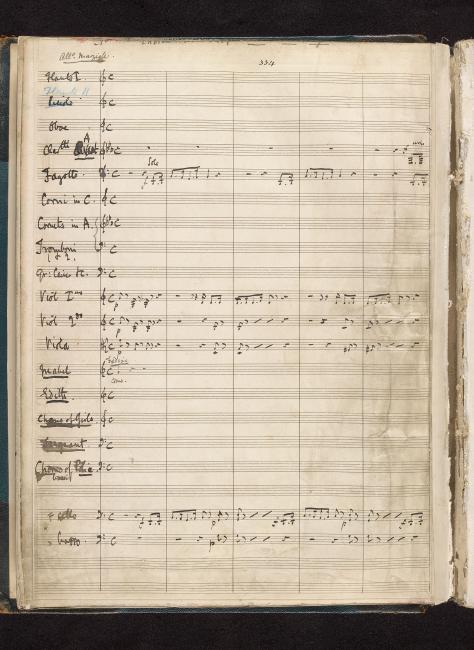 Allo. Marziale.
334
Flauto I.
Flauto II
Oboe
Cltti A
Fagotto.
Solo
Corni in C.
Cornets in A.
Tromboni
Gr: Cassa &c.
Viol Imo
Viol 2do
Viola
p
p
p
Mabel
Edith
Chorus of Girls
Sergeant.
Chorus of Police
Cello
p
p
Basso.
p